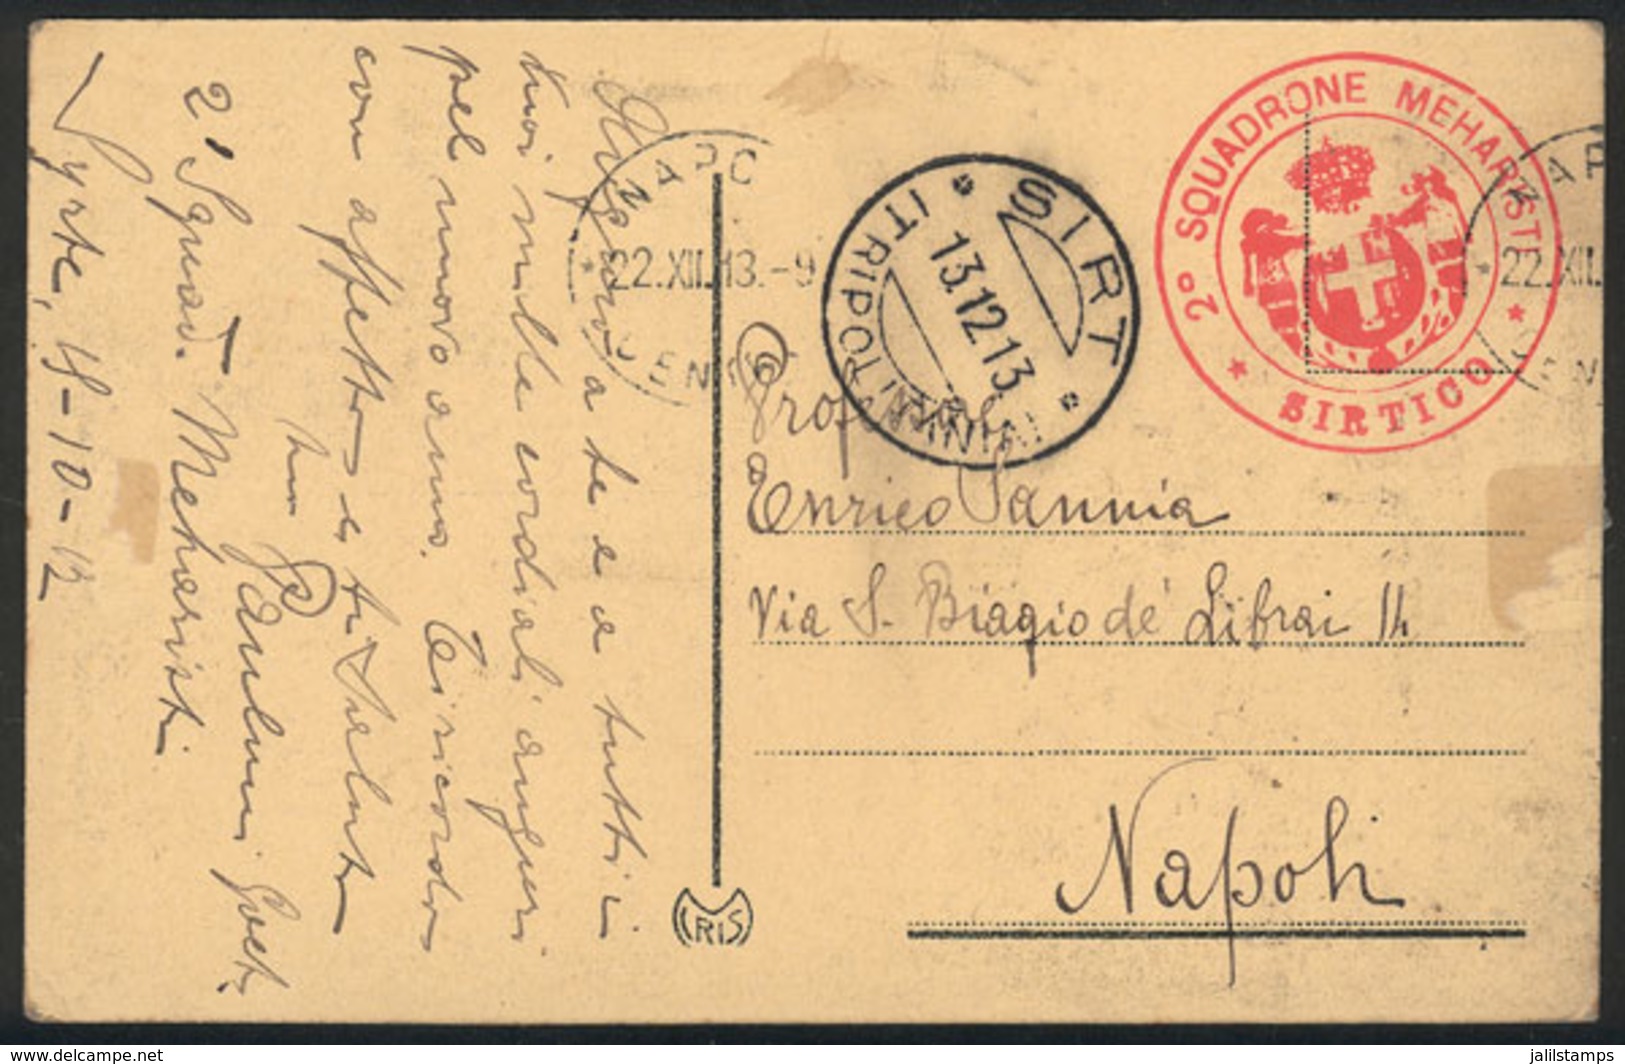 Auguro a te e a tutti i
tuoi mille cordiali auguri
pel nuovo anno. Ti ricordo
con affetto e ti
tuo
2° Squad. Meharisti
Syrte, 18-10-12
NAPO
22.XII.13.-9
CEN
SIRT
13.12.13
(TRIPOLITANIA)
2° SQUADRONE MEHARISTE
SIRTICO
NAP
22.XII.
Prof.
Enrico Sannia
Via S. Biagio dé Librai 14
Napoli
IRIS
delcampe.net
jalilstamps